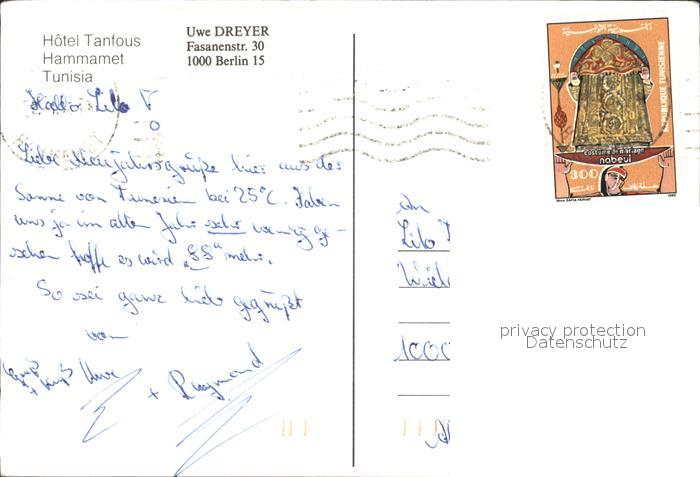 Hôtel Tanfous
Hammamet
Tunisia
Uwe DREYER
Fasanenstr. 30
1000 Berlin 15
Hallo Lilo
Liebe Neujahrsgrüße hier aus der
Sonne von Tunesien bei 25°C. Haben
uns ja im alten Jahr sehr wenig ge-
sehen hoffe es wird „88“ mehr.
So sei ganz lieb gegrüßt
von
Gruß
+ Kuß Uwe
+ Raymond
REPUBLIQUE TUNISIENNE
Costume de mariage
nabeul
300
An
Lilo
1000
privacy protection
Datenschutz